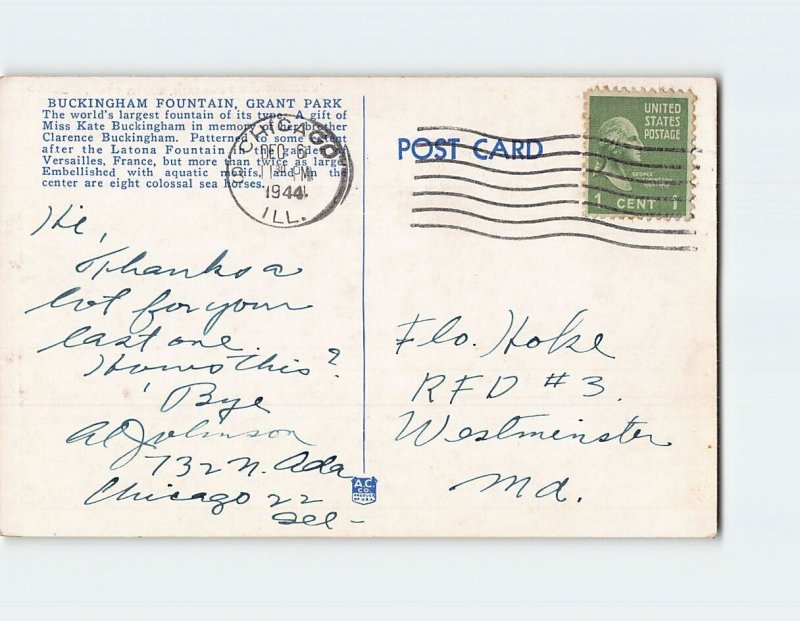 BUCKINGHAM FOUNTAIN, GRANT PARK
The world's largest fountain of its type. A gift of
Miss Kate Buckingham in memory of her brother
Clarence Buckingham. Patterned to some extent
after the Latona Fountain in the gardens
Versailles, France, but more than twice as large.
Embellished with aquatic motifs, and in the
center are eight colossal sea horses.
CHICAGO
DEC 6
PM
1944
ILL.
POST CARD
UNITED
STATES
POSTAGE
GEORGE
WASHINGTON
1 CENT 1
Hi,
Thanks a
lot for your
last one.
Hows this?
Bye
Al Johnson
732 N. Ada
Chicago 22
Ill -
Flo. Hoke
RFD #3.
Westminster
Md.
A.C.
CO.
PRODUCT
OF U.S.A.